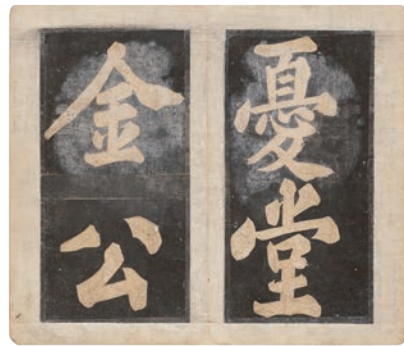 憂堂
金公